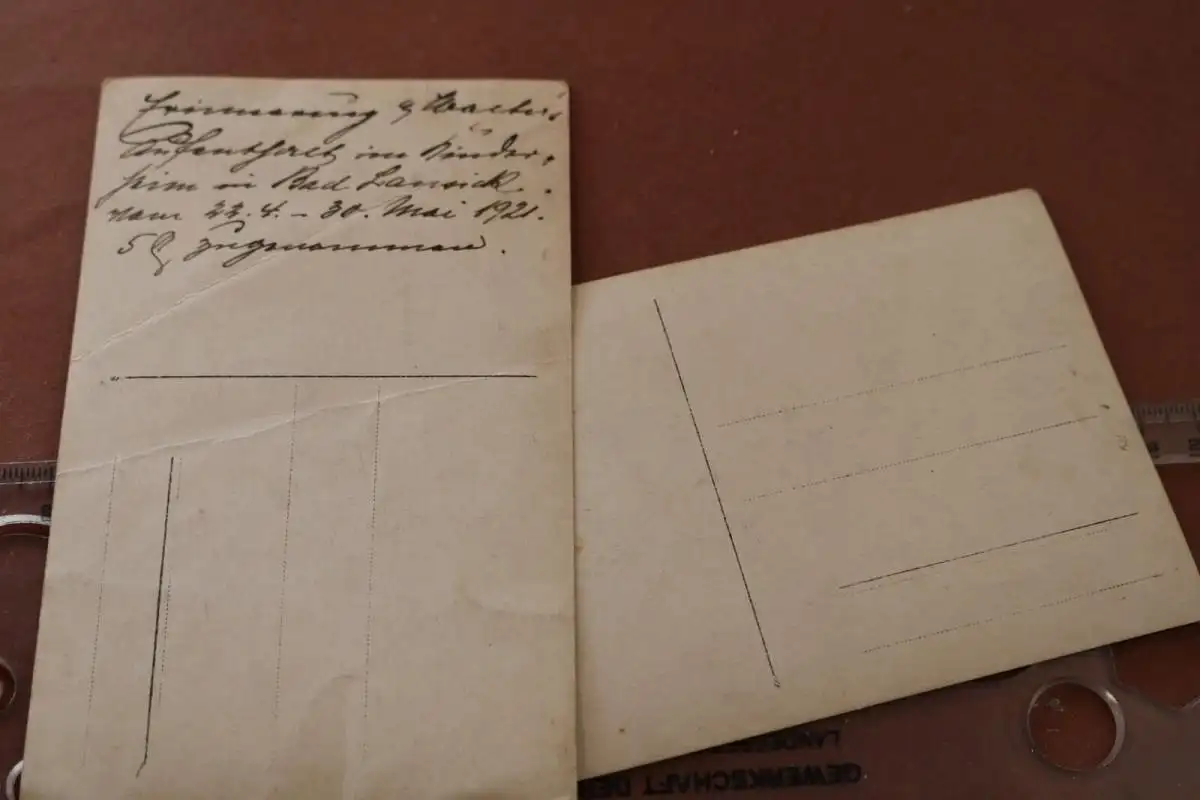 Erinnerung a Walter's
Aufenthalt im Kinder-
heim in Bad Lausick.
vom 22. 4. - 30. Mai 1921.
5 ℔ zugenommen.
GEWERKSCHAFT DER